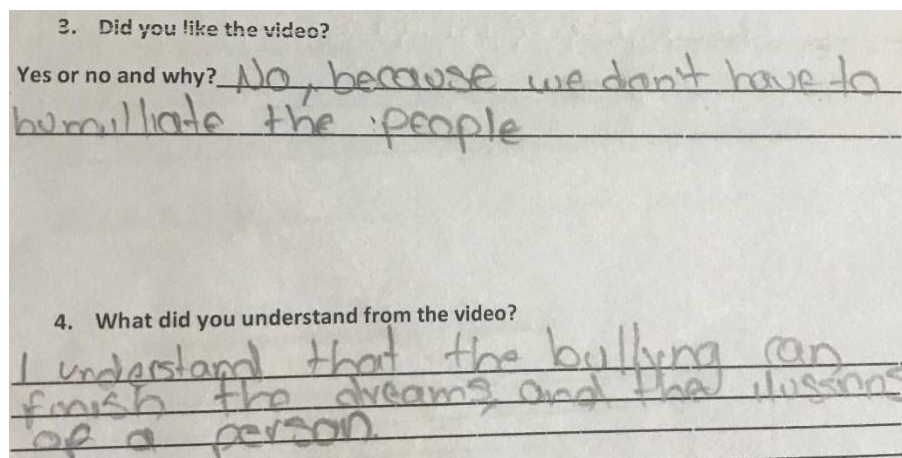 3. Did you like the video?
Yes or no and why? No, because we don't have to
humilliate the people
4. What did you understand from the video?
I understand that the bullying can
finish the dreams and the ilussions
of a person.